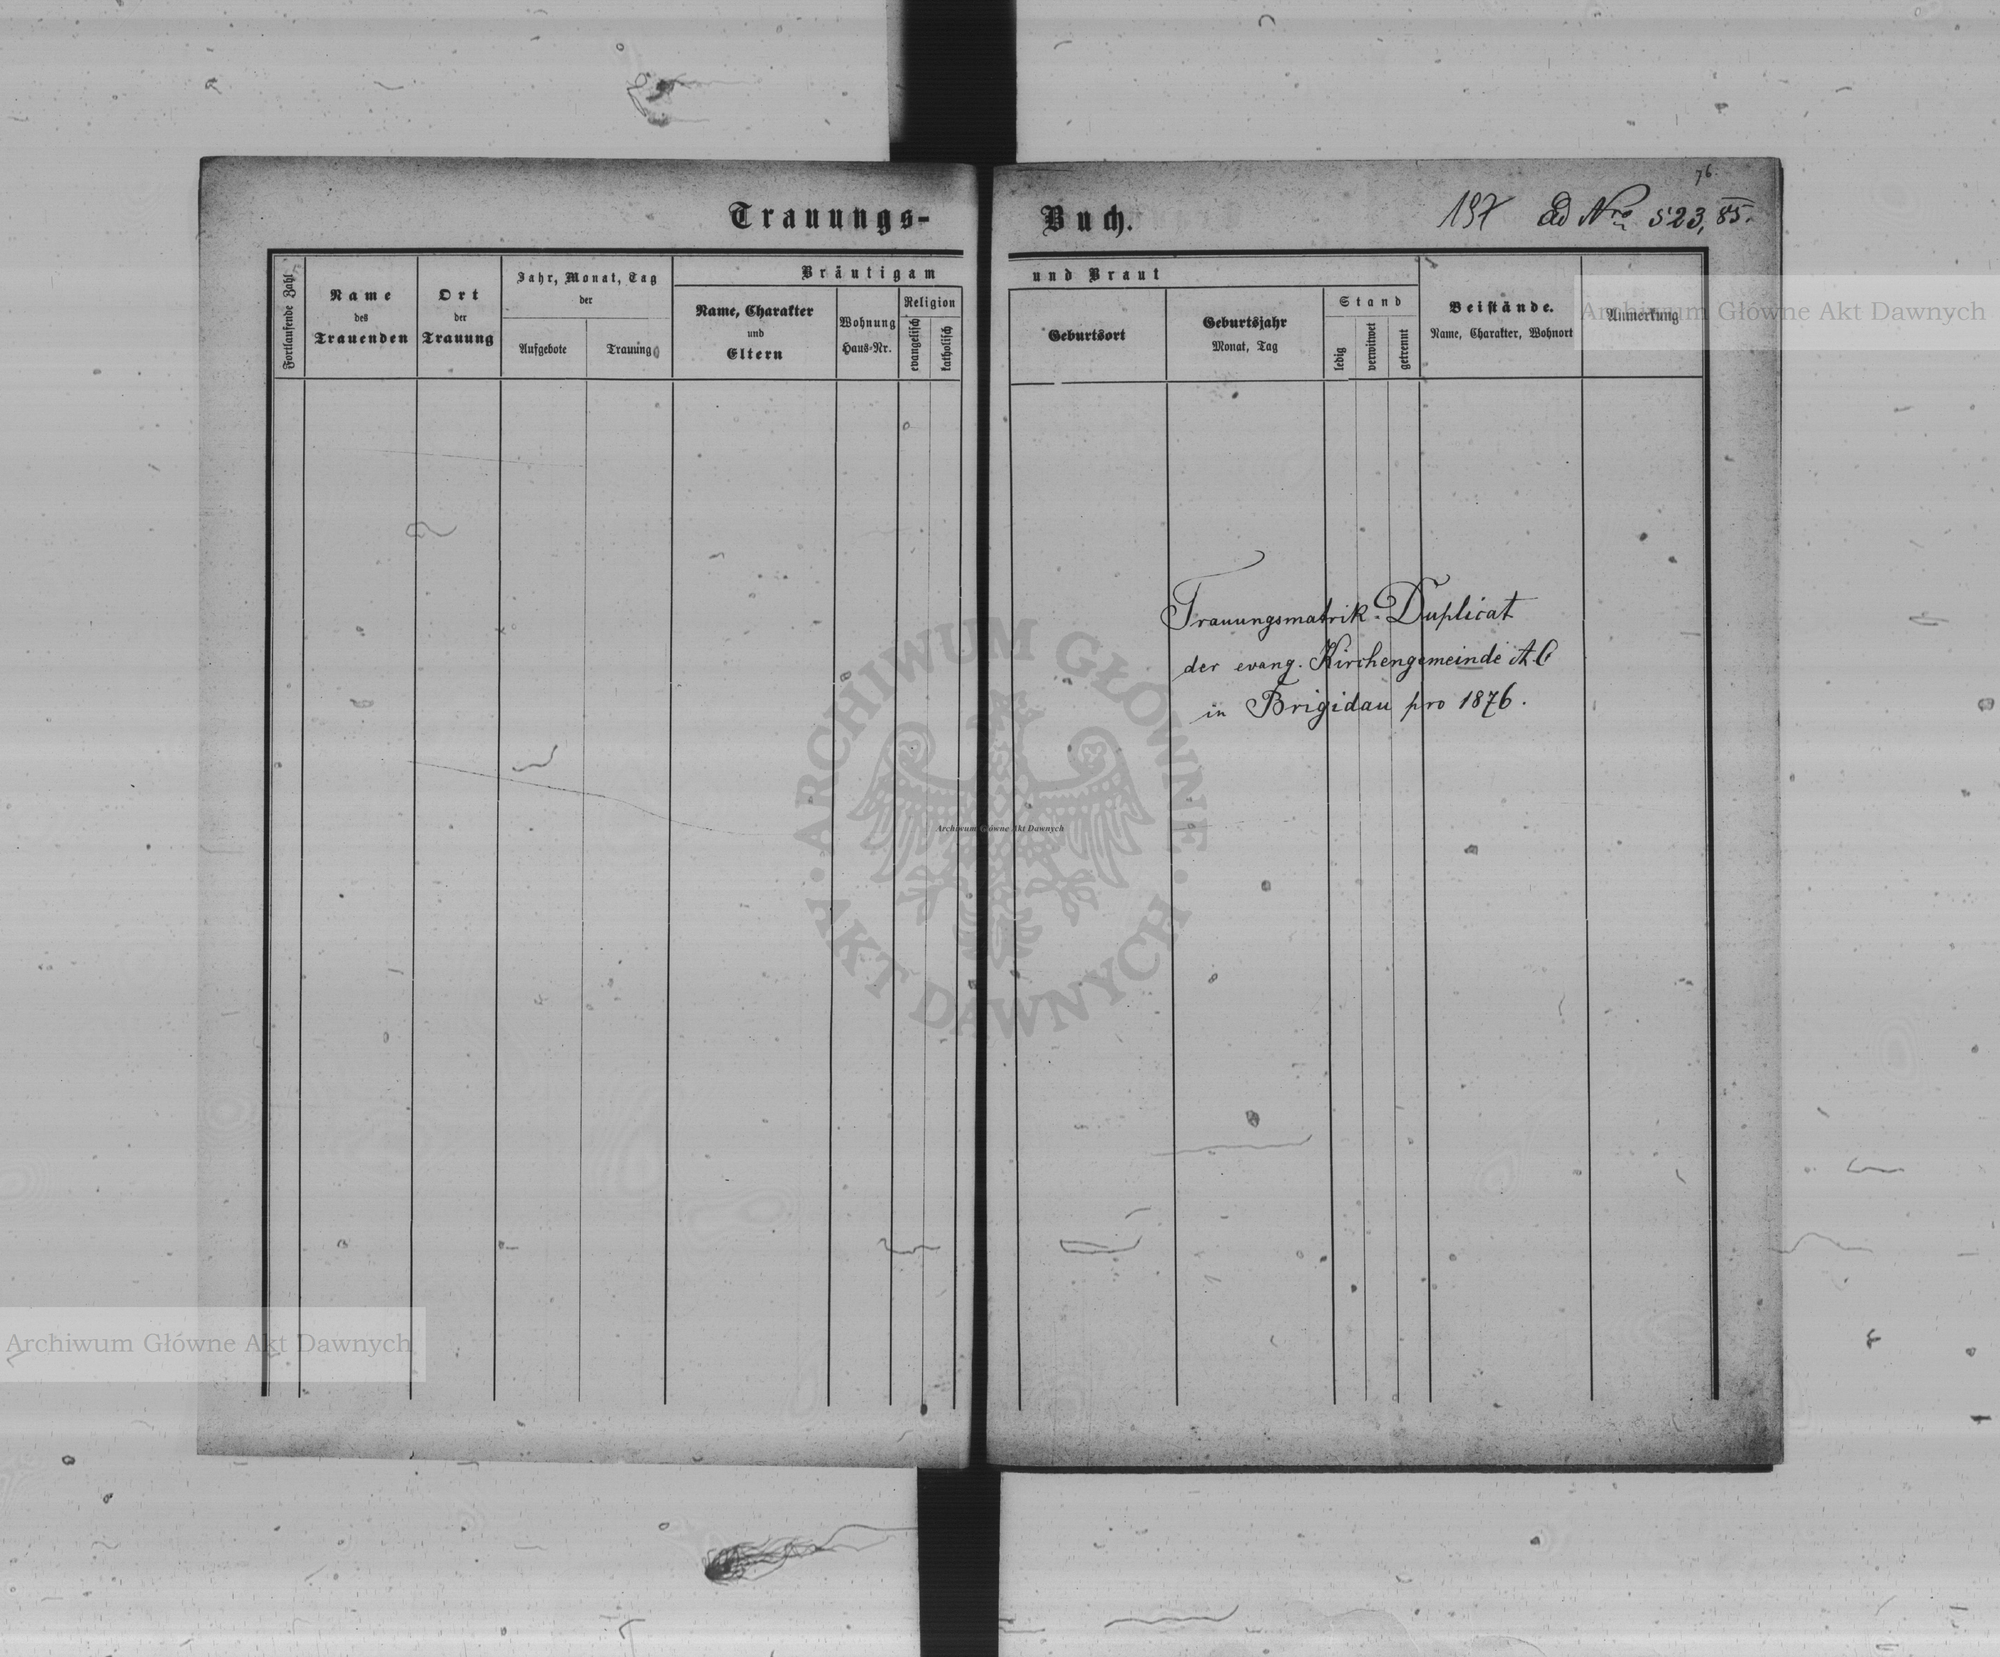 76.
197 Ad Nro 523, 85.
Trauungs-Buch.
Bräutigam und Braut
Fortlaufende Zahl
Name
des
Trauenden
Ort
der
Trauung
Jahr, Monat, Tag
der
Aufgebote
Trauung
Name, Charakter
und
Eltern
Wohnung
Haus-Nr.
Religion
evangelisch
katholisch
Geburtsort
Geburtsjahr
Monat, Tag
Stand
ledig
verwitwet
getrennt
Beistände.
Name, Charakter, Wohnort
Anmerkung
Archiwum Główne Akt Dawnych
Trauungsmatrik-Duplicat
der evang. Kirchengemeinde A.C
in Brigidau pro 1876.
ARCHIWUM GŁÓWNE
Archiwum Główne Akt Dawnych
AKT DAWNYCH
Archiwum Główne Akt Dawnych